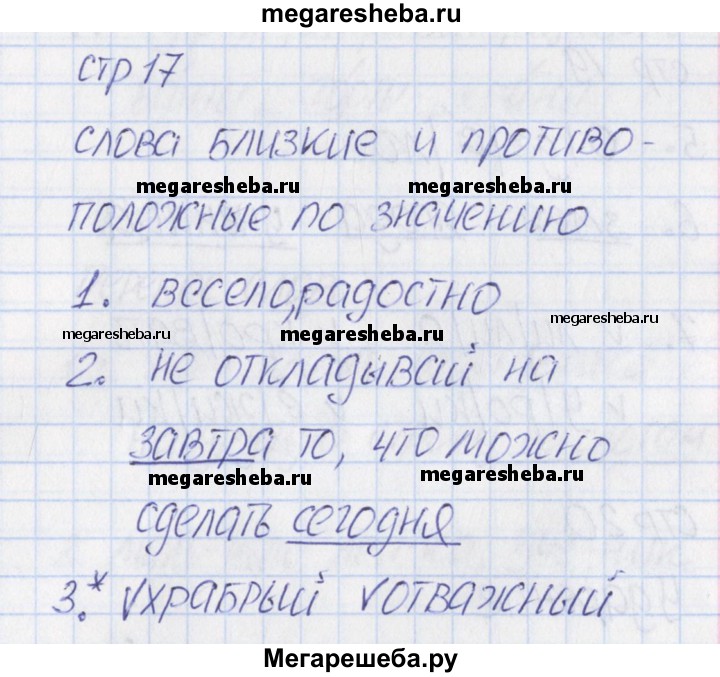 megaresheba.ru
стр 17
слова близкие и противо-
megaresheba.ru megaresheba.ru
положные по значению
1. весело, радостно
megaresheba.ru megaresheba.ru megaresheba.ru
2. не откладывай на
завтра то, что можно
megaresheba.ru megaresheba.ru
сделать сегодня
3.* √храбрый √отважный
Мегарешеба.ру